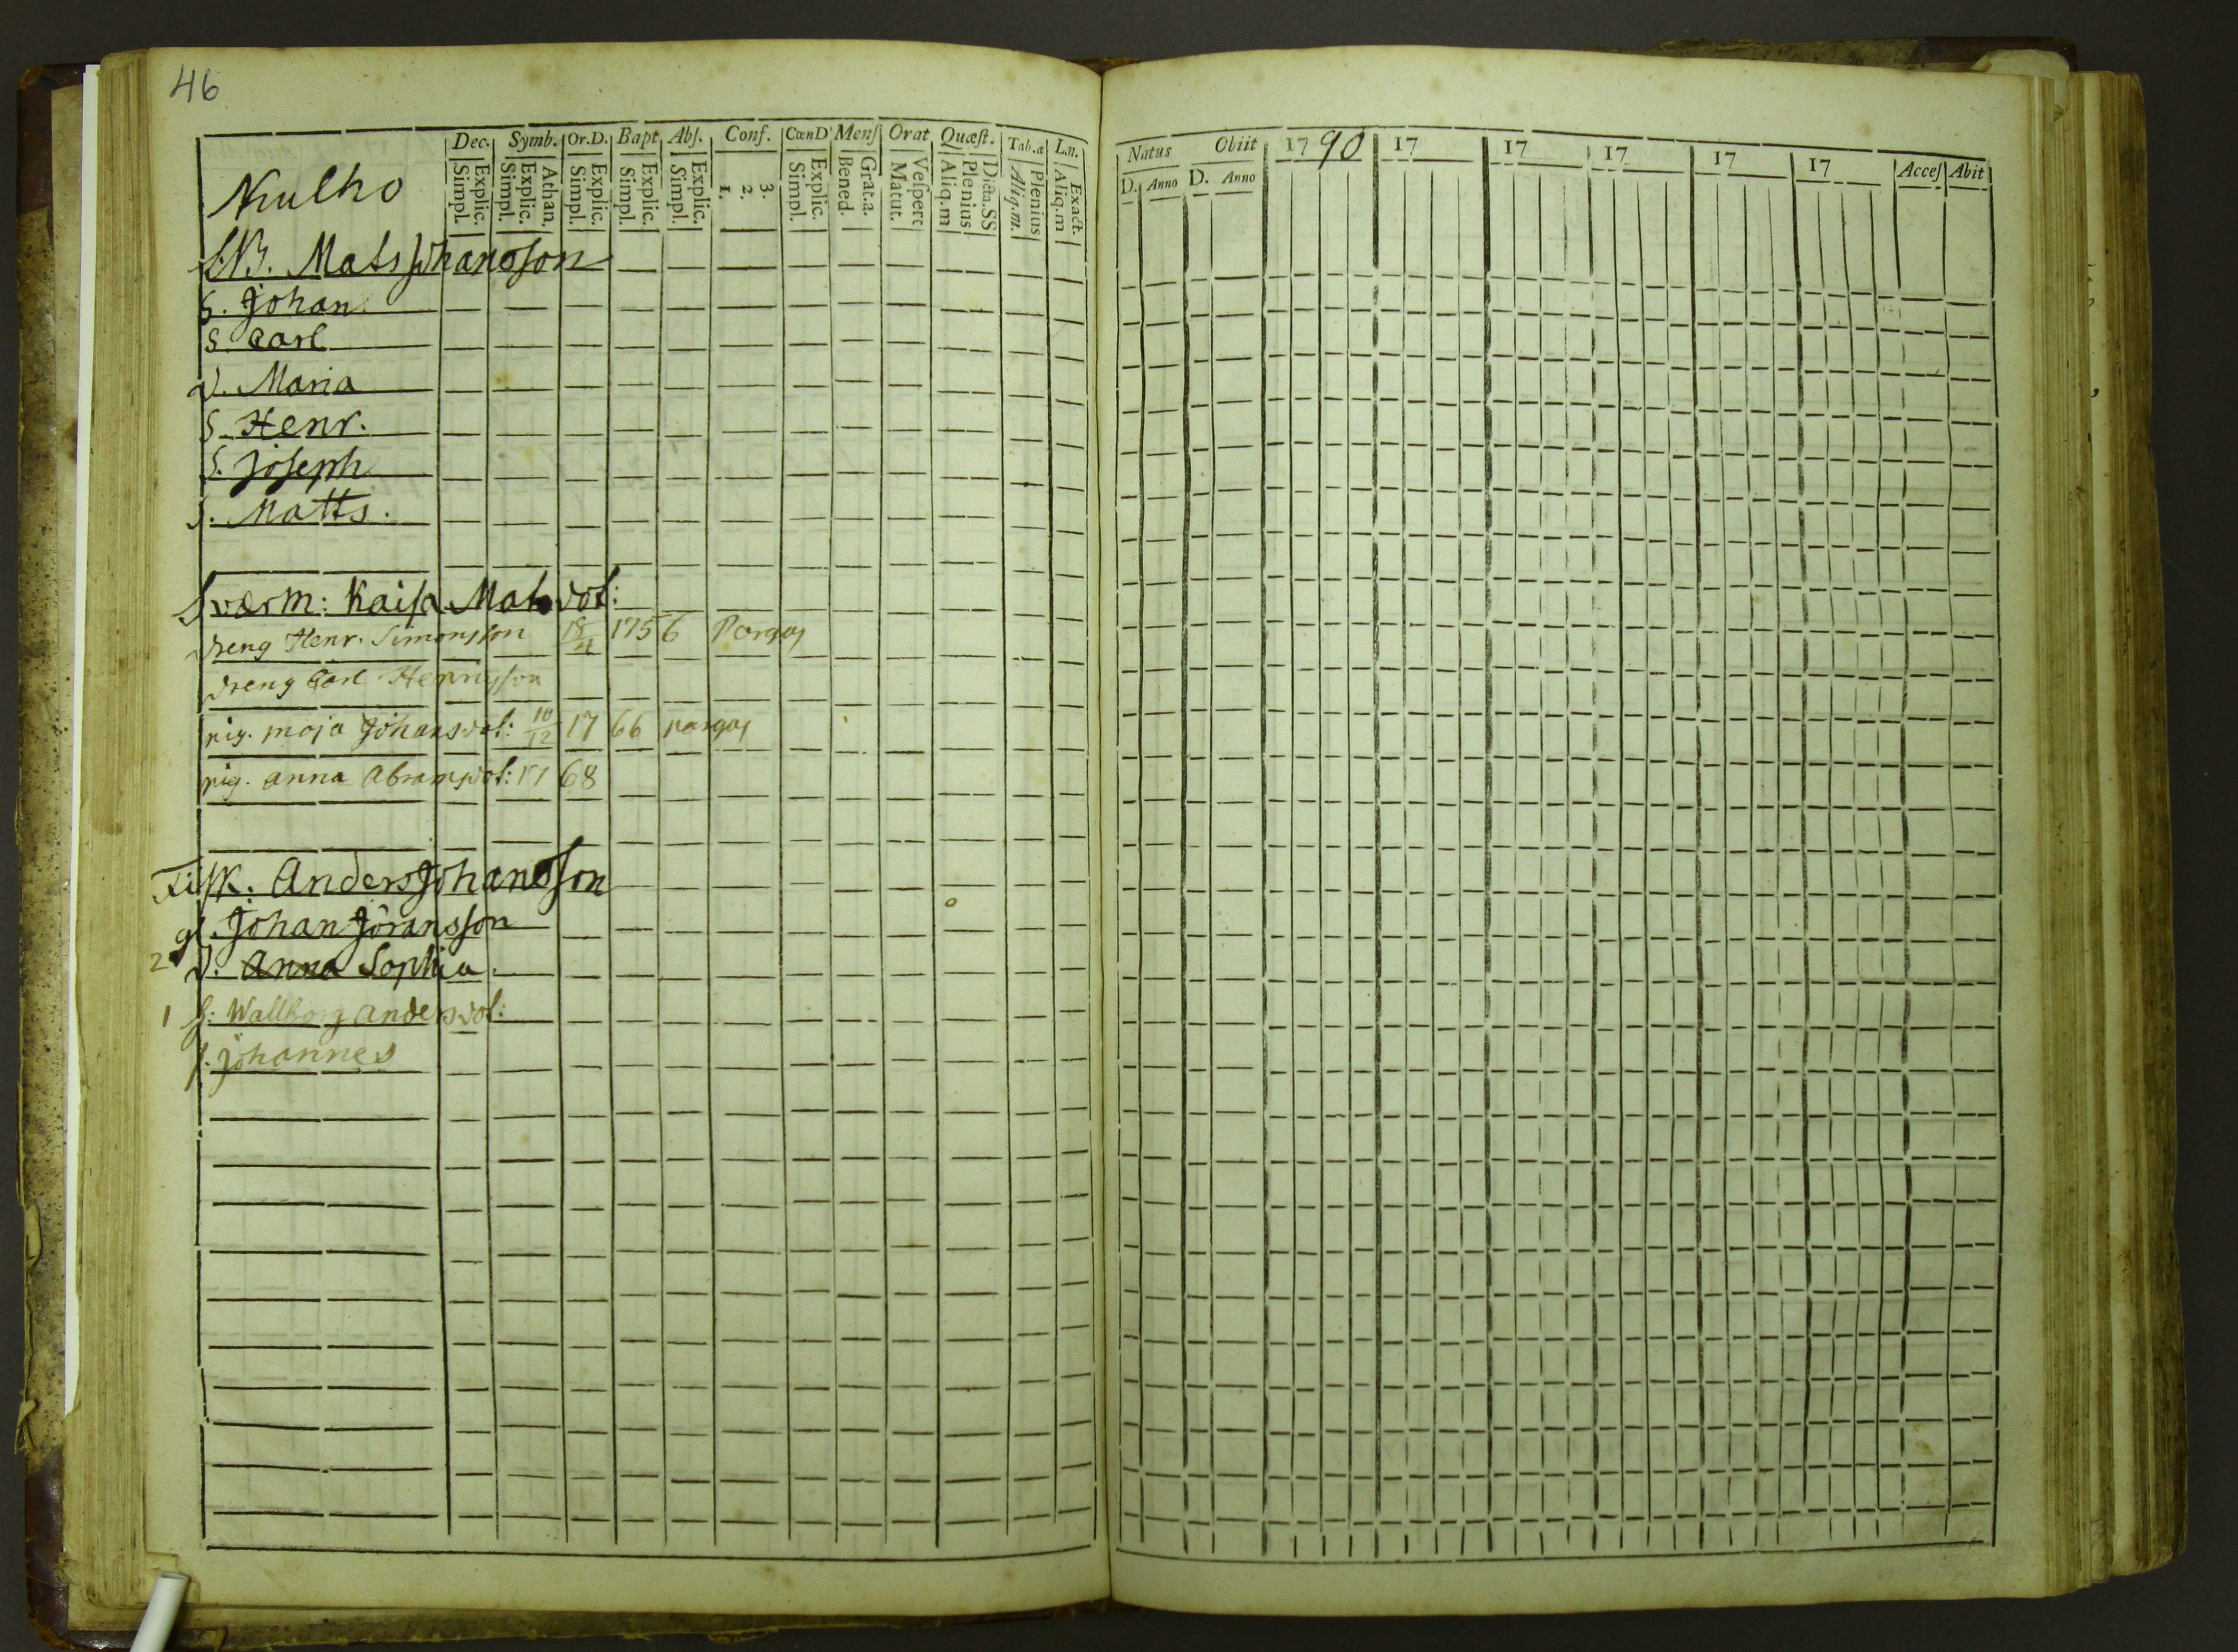 46
Dec. Symb. Or.D. Bapt. Abſ. Conf. CœnD Menſ Orat Quæſt. Tab.æ L.n.
Explic. Simpl. Athan. Explic. Simpl. Explic. Simpl. Explic. Simpl. Explic. Simpl. 3. 2. 1. Explic. Simpl. Grat.a. Bened. Veſpert Matut. Dicta.SS Plenius Aliq.m Plenius Aliq.m. Exact. Aliq.m
Natus Obiit 1790 17 17 17 17 17 Acceſ Abit
D. Anno D. Anno
Kulho
Mats Johansſon
S. Johan
S. Carl
D. Maria
S. Henr.
S. Joſeph
S. Matts.
Sværm: Kaiſa Mats dot:
dreng Henr. Simonsſon 18/4 1756 Pargas
dreng Carl Henriſſon
pig. maja Johansdot: 10/12 1766 pargas
pig. anna Abramsdot: 1768
Fiſk. Anders Johansſon
gl. Johan Jöransſon
2 D. Anna Sophia
1 H: Wallborg Andersdot:
ſ. Johannes